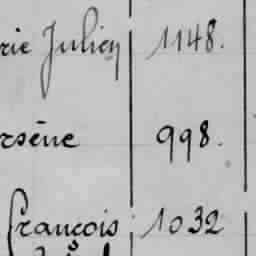 rie Julien 1148.
rsène 998.
François 1032